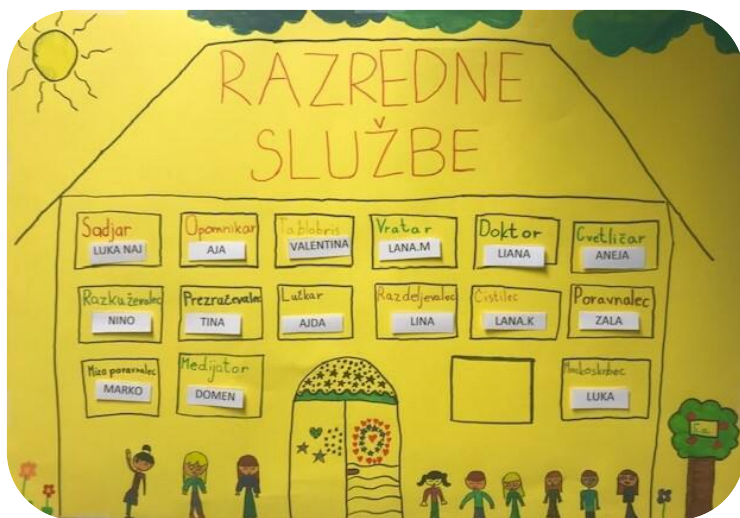 RAZREDNE
SLUŽBE
Sadjar
LUKA NAJ
Opomnikar
AJA
Tablobris
VALENTINA
Vratar
LANA.M
Doktor
LIANA
Cvetličar
ANEJA
Razkuževalec
NINO
Prezračevalec
TINA
Lučkar
AJDA
Razdeljevalec
LINA
Čistilec
LANA.K
Poravnalec
ZALA
Miza poravnalec
MARKO
Medijator
DOMEN
LUKA